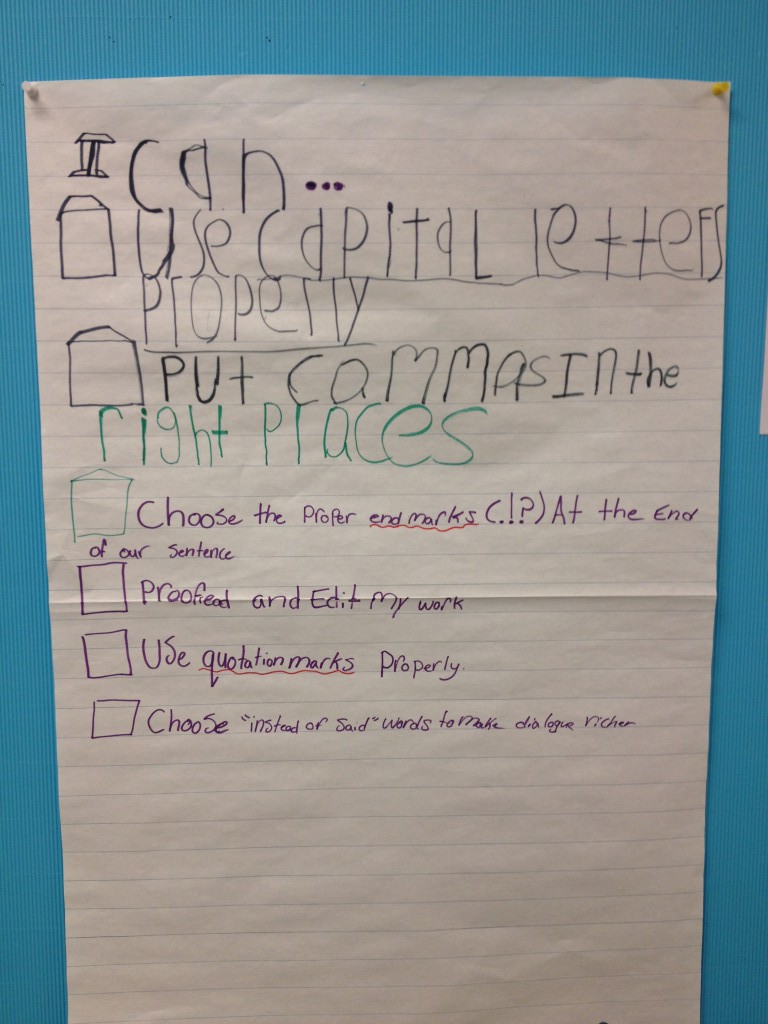 I can...
Use capital letters
properly
Put commas In the
right places
Choose the Proper end marks (.!?) At the End
of our sentence
Proofread and Edit My work
Use quotation marks Properly.
Choose "instead of said" words to make dialogue richer